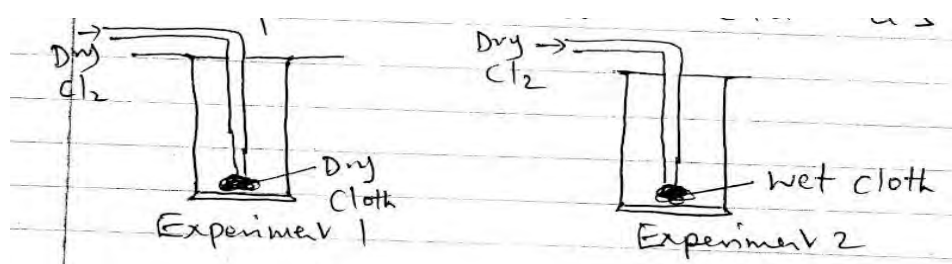 Dry
Cl₂
Dry
Cloth
Experiment 1
Dry
Cl₂
Wet Cloth
Experiment 2